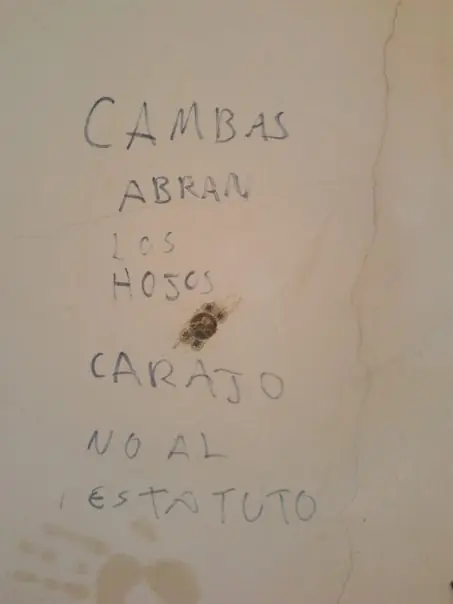 CAMBAS
ABRAN
LOS
HOJOS
CARAJO
NO AL
ESTATUTO